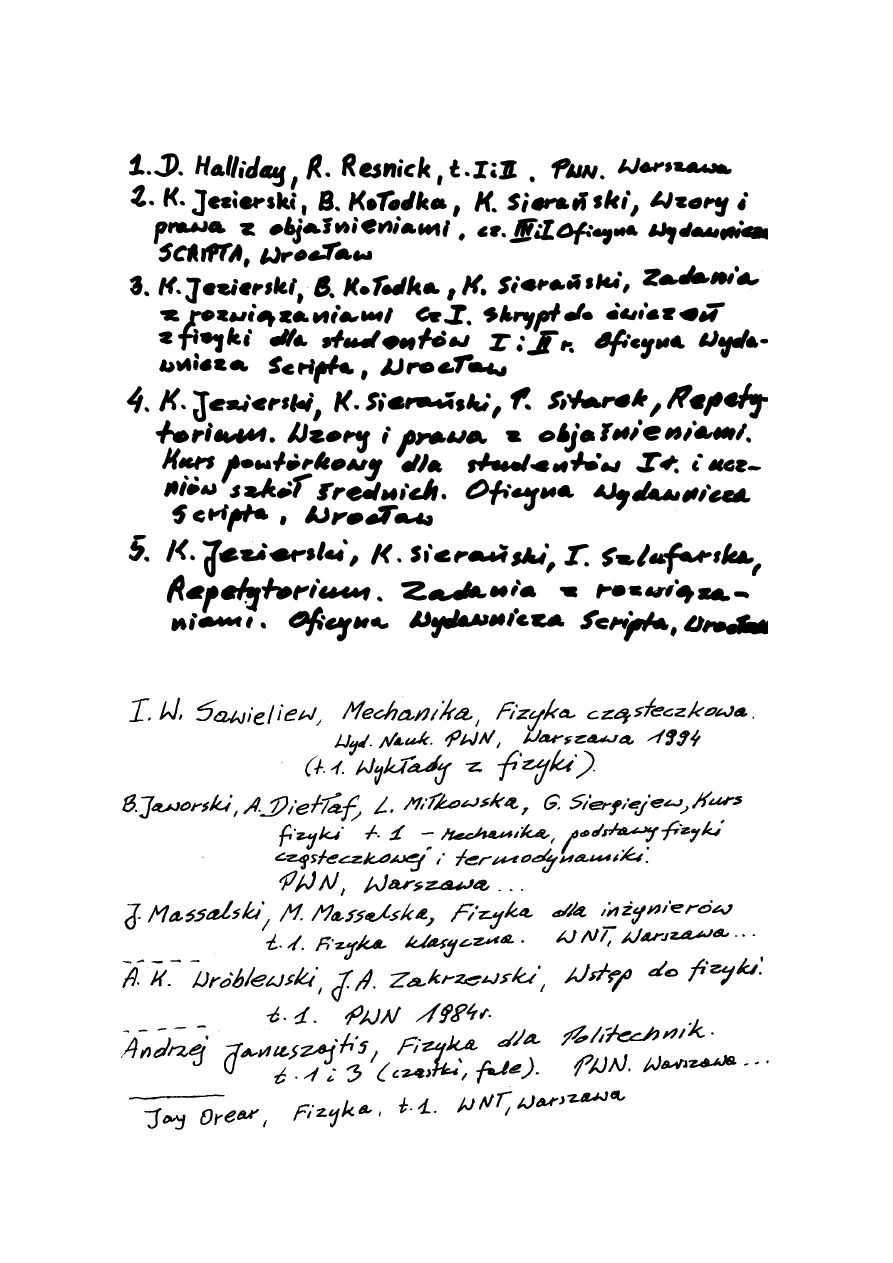 1. D. Halliday, R. Resnick, t. I i II. PWN. Warszawa
2. K. Jezierski, B. Kołodka, K. Sierański, Wzory i
prawa z objaśnieniami, cz. III i I Oficyna Wydawnicza
SCRIPTA, Wrocław
3. K. Jezierski, B. Kołodka, K. Sierański, Zadania
z rozwiązaniami Cz I. Skrypt do ćwiczeń
z fizyki dla studentów I i II r. Oficyna Wyda-
wnicza Scripta, Wrocław
4. K. Jezierski, K. Sierański, P. Sitarek, Repety-
torium. Wzory i prawa z objaśnieniami.
Kurs powtórkowy dla studentów I r. i ucz-
niów szkół średnich. Oficyna Wydawnicza
Scripta, Wrocław
5. K. Jezierski, K. Sierański, I. Szlufarska,
Repetytorium. Zadania z rozwiąza-
niami. Oficyna Wydawnicza Scripta, Wrocław
I. W. Sawieliew, Mechanika, Fizyka cząsteczkowa.
Wyd. Nauk. PWN, Warszawa 1994
(t.1. Wykłady z fizyki).
B. Jaworski, A. Dietłaf, L. Miłkowska, G. Siergiejew, Kurs
fizyki t. 1 - Mechanika, podstawy fizyki
cząsteczkowej i termodynamiki.
PWN, Warszawa ...
J. Massalski, M. Massalska, Fizyka dla inżynierów
t.1. Fizyka klasyczna. WNT, Warszawa...
A. K. Wróblewski, J. A. Zakrzewski, Wstęp do fizyki.
t. 1. PWN 1984r.
Andrzej Januszajtis, Fizyka dla Politechnik.
t. 1 i 3 (cząstki, fale). PWN. Warszawa...
Jay Orear, Fizyka. t. 1. WNT, Warszawa